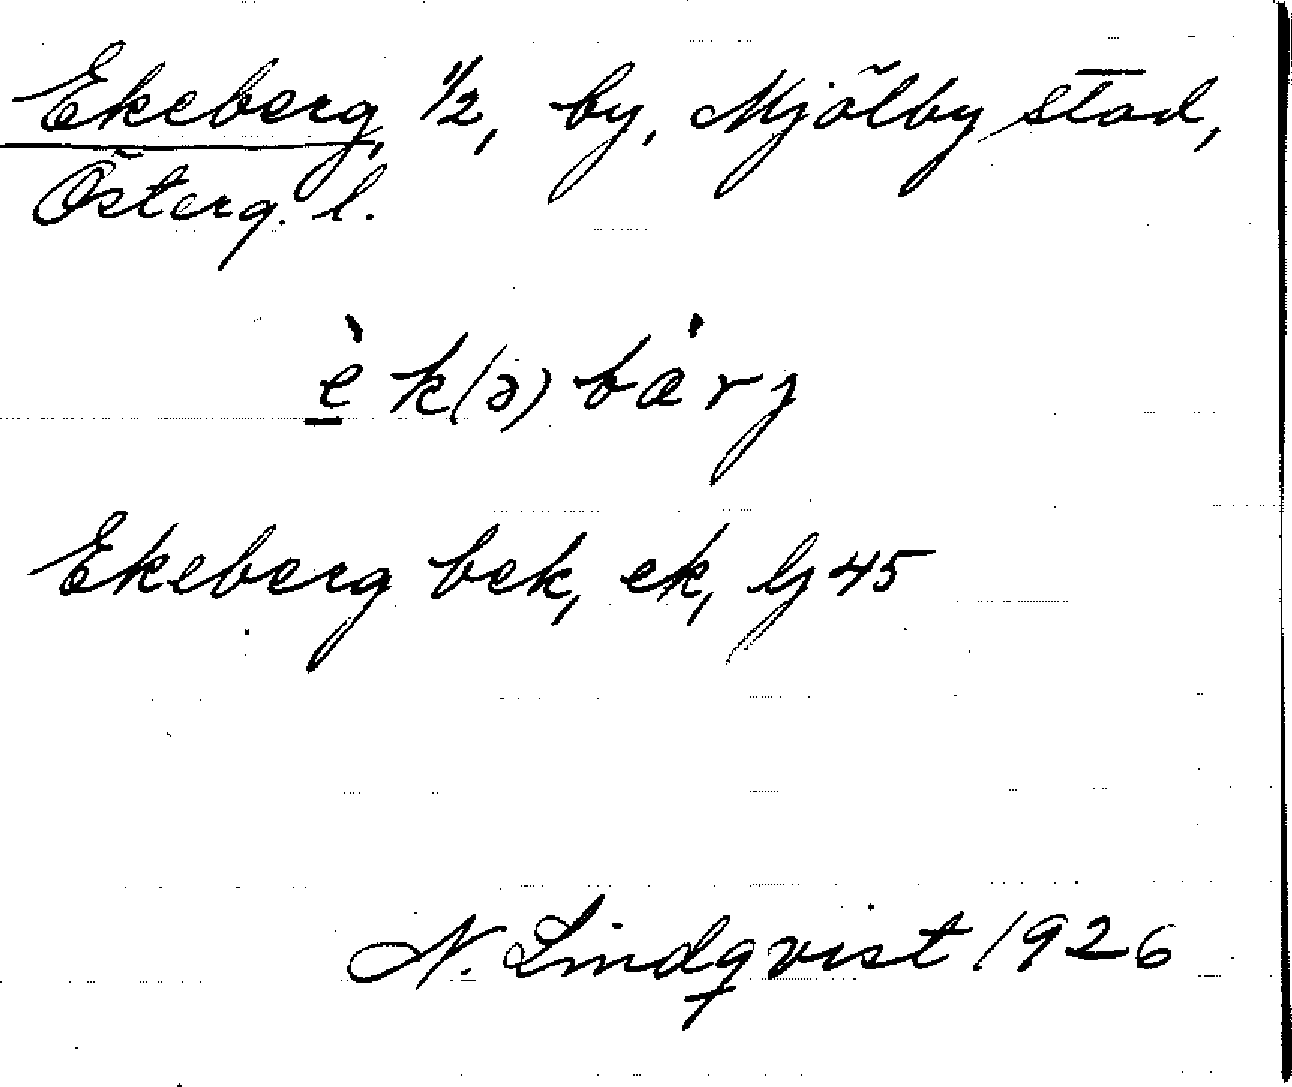 Ekeberg, 1/2, by, Mjölby stad,
Österg. l.
è̲k(ə)bárj
Ekeberg bek, ek, Lj 45
N. Lindqvist 1926